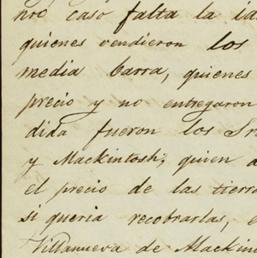 nro caso falta la id
quienes vendieron los
media barra, quienes
precio y no entregaron
dida fueron los Srs
y Mackintosh; quien a
el precio de las tierr
si queria recobrarlas, e
Villanueva de Mackin